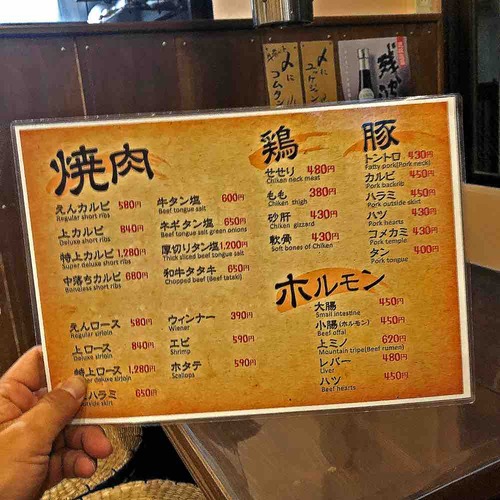 焼肉
えんカルビ 580円
Regular short ribs
上カルビ 840円
Deluxe short ribs
特上カルビ 1,280円
Super deluxe short ribs
中落ちカルビ 680円
Boneless short ribs
えんロース 580円
Regular sirloin
上ロース 840円
Deluxe sirloin
特上ロース 1,280円
deluxe sirloin
ハラミ 650円
Outside skirt
牛タン塩 600円
Beef tongue salt
ネギタン塩 650円
Beef tongue salt green onions
厚切りタン塩 1,200円
Thick sliced beef tongue salt
和牛タタキ 650円
Chopped beef (Beef tataki)
ウィンナー 390円
Wiener
エビ 590円
Shrimp
ホタテ 590円
Scallops
鶏
せせり 480円
Chiken neck meat
もも 380円
Chiken thigh
砂肝 430円
Chiken gizzard
軟骨 430円
Soft bones of Chiken
豚
トントロ 430円
Fatty pork(Pork neck)
カルビ 450円
Pork backrib
ハラミ 450円
Pork outside skirt
ハツ 430円
Pork hearts
コメカミ 430円
Pork temple
タン 400円
Pork tongue
ホルモン
大腸 450円
Small intestine
小腸(ホルモン) 450円
Beef offal
上ミノ 620円
Mountain tripe(Beef rumen)
レバー 480円
Liver
ハツ 450円
Beef hearts
〆に
コムタン
〆に
ユッケジャン
残波